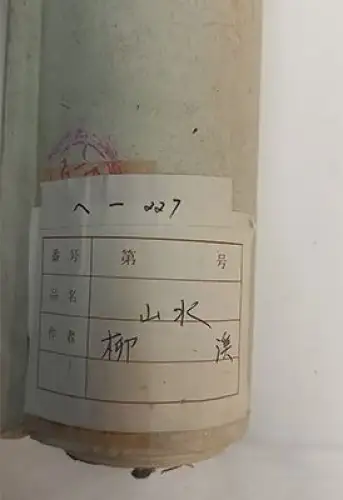 へ一227
番号 第 号
品名 山水
作者 柳 溪